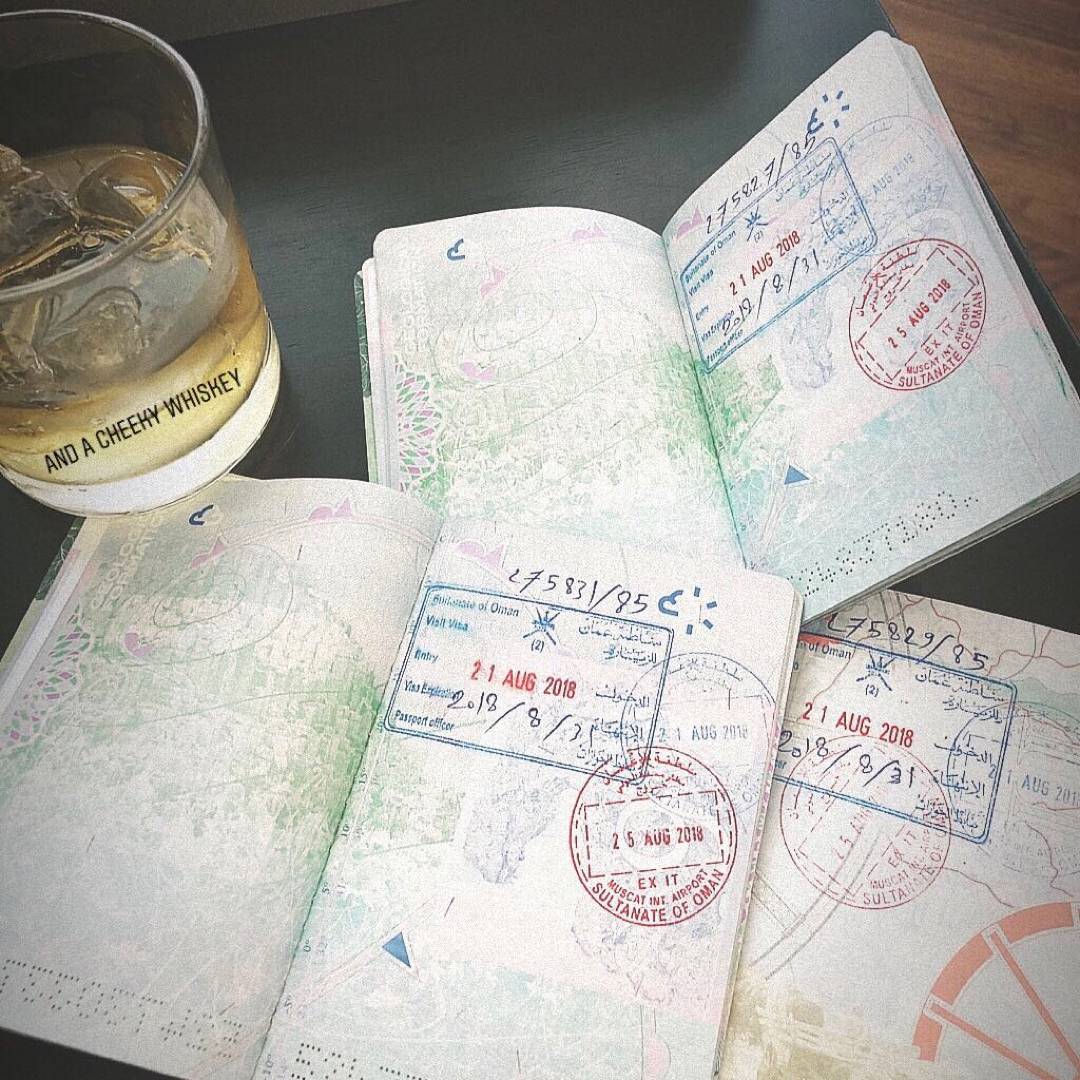 AND A CHEEKY WHISKEY
275827/85
Sultanate of Oman
سلطنة عمان
Visit Visa
(2)
للزيارة
Entry
21 AUG 2018
الدخول
Visa Expiration
2018/8/31
Passport officer
AUG 2018
سلطنة عمان
25 AUG 2018
EXIT
MUSCAT INT. AIRPORT
SULTANATE OF OMAN
275831/85
Sultanate of Oman
سلطنة عمان
Visit Visa
(2)
للزيارة
Entry
21 AUG 2018
الدخول
Visa Expiration
2018/8/31
الانتهاء
Passport officer
21 AUG 2018
سلطنة عمان
25 AUG 2018
EXIT
MUSCAT INT. AIRPORT
SULTANATE OF OMAN
275829/85
of Oman
سلطنة عمان
(2)
للزيارة
21 AUG 2018
الدخول
2018/8/31
الانتهاء
21 AUG 201
25 AU
EXIT
MUSCAT INT. A
SULTANATE OF